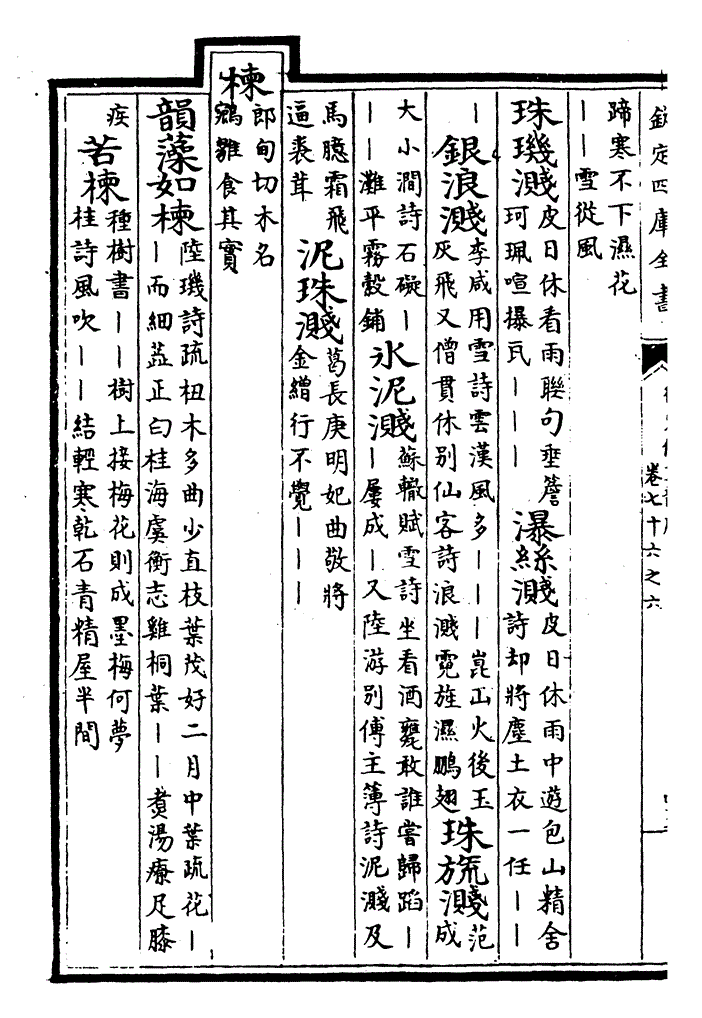 欽定四庫全書
卷七十六之六
蹄寒不下濕花
｜｜雪從風
珠璣濺皮日休看雨聯句垂簷
珂珮喧瓦｜｜｜
瀑絲濺皮日休雨中遊包山精舍
詩却將塵土衣一任｜｜
｜
銀浪濺李咸用雪詩雲漢風多｜｜｜崑山火後玉
灰飛又僧貫休别仙客詩浪濺霓旌濕鵬翅
珠旒濺范
成
大小澗詩石礙｜
｜｜灘平霧縠鋪
氷泥濺蘇轍賦雪詩坐看酒甕敢誰嘗歸蹈｜
｜屢成｜又陸游别傅主簿詩泥濺及
馬臆霜飛
逼裘茸
泥珠濺葛長庚明妃曲敬將
金繒行不覺｜｜｜
楝郎甸切木名
鵷雛食其實
韻藻如楝陸璣詩疏杻木多曲少直枝葉茂好二月中葉疏花｜
｜而細蕋正白桂海虞衡志雞桐葉｜｜煑湯療足膝
疾
苦楝種樹書｜｜樹上接梅花則成墨梅何夢
桂詩風吹｜｜結輕寒乾石青精屋半間